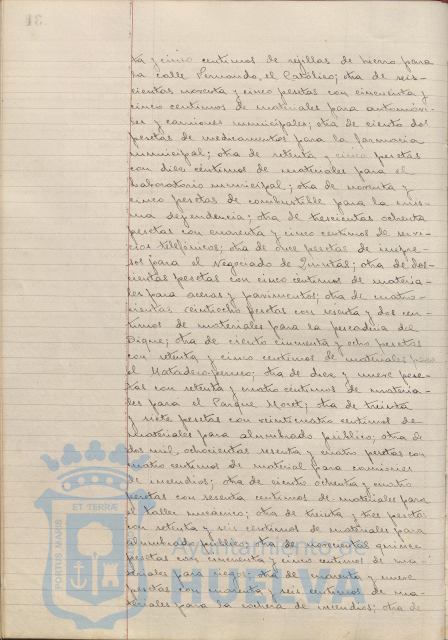 31
ta y cinco centimos de rejillas de hierro para
la calle Fernando el Católico; otra de seis-
cientas noventa y cinco pesetas con cincuenta y
cinco centimos de materiales para automóvi-
les y camiones municipales; otra de ciento dos
pesetas de medicamentos para la farmacia
municipal; otra de setenta y cinco pesetas
con diez centimos de materiales para el
Laboratorio municipal; otra de noventa y
cinco pesetas de combustible para la mis-
ma dependencia; otra de trescientas ochenta
pesetas con cuarenta y cinco centimos de servi-
cios telefónicos; otra de once pesetas de impre-
sos para el Negociado de Quintas; otra de dos-
cientas pesetas con cinco centimos de materia-
les para aceras y pavimentos; otra de cuatro-
cientas veintiocho pesetas con sesenta y dos cen-
timos de materiales para la pescaderia del
Dique; otra de ciento cincuenta y ocho pesetas
con setenta y cinco centimos de materiales para
el Matadero perruno; otra de diez y nueve pese-
tas con setenta y cuatro centimos de materia-
les para el Parque Moret; otra de treinta
y siete pesetas con veinticuatro centimos de
materiales para alumbrado público; otra de
dos mil, ochocientas sesenta y cuatro pesetas con
cuatro centimos de material para camiones
de incendios; otra de ciento ochenta y cuatro
pesetas con sesenta centimos de materiales para
el taller mecánico; otra de treinta y tres pesetas
con setenta y seis centimos de materiales para
alumbrado público; otra de novecientas quince
pesetas con cincuenta y cinco centimos de ma-
teriales para riegos; otra de cuarenta y nueve
pesetas con cuarenta y seis centimos de ma-
teriales para la cochera de incendios; otra de
PORTUS MARIS ET TERRÆ
Ayuntamiento de
HUELVA